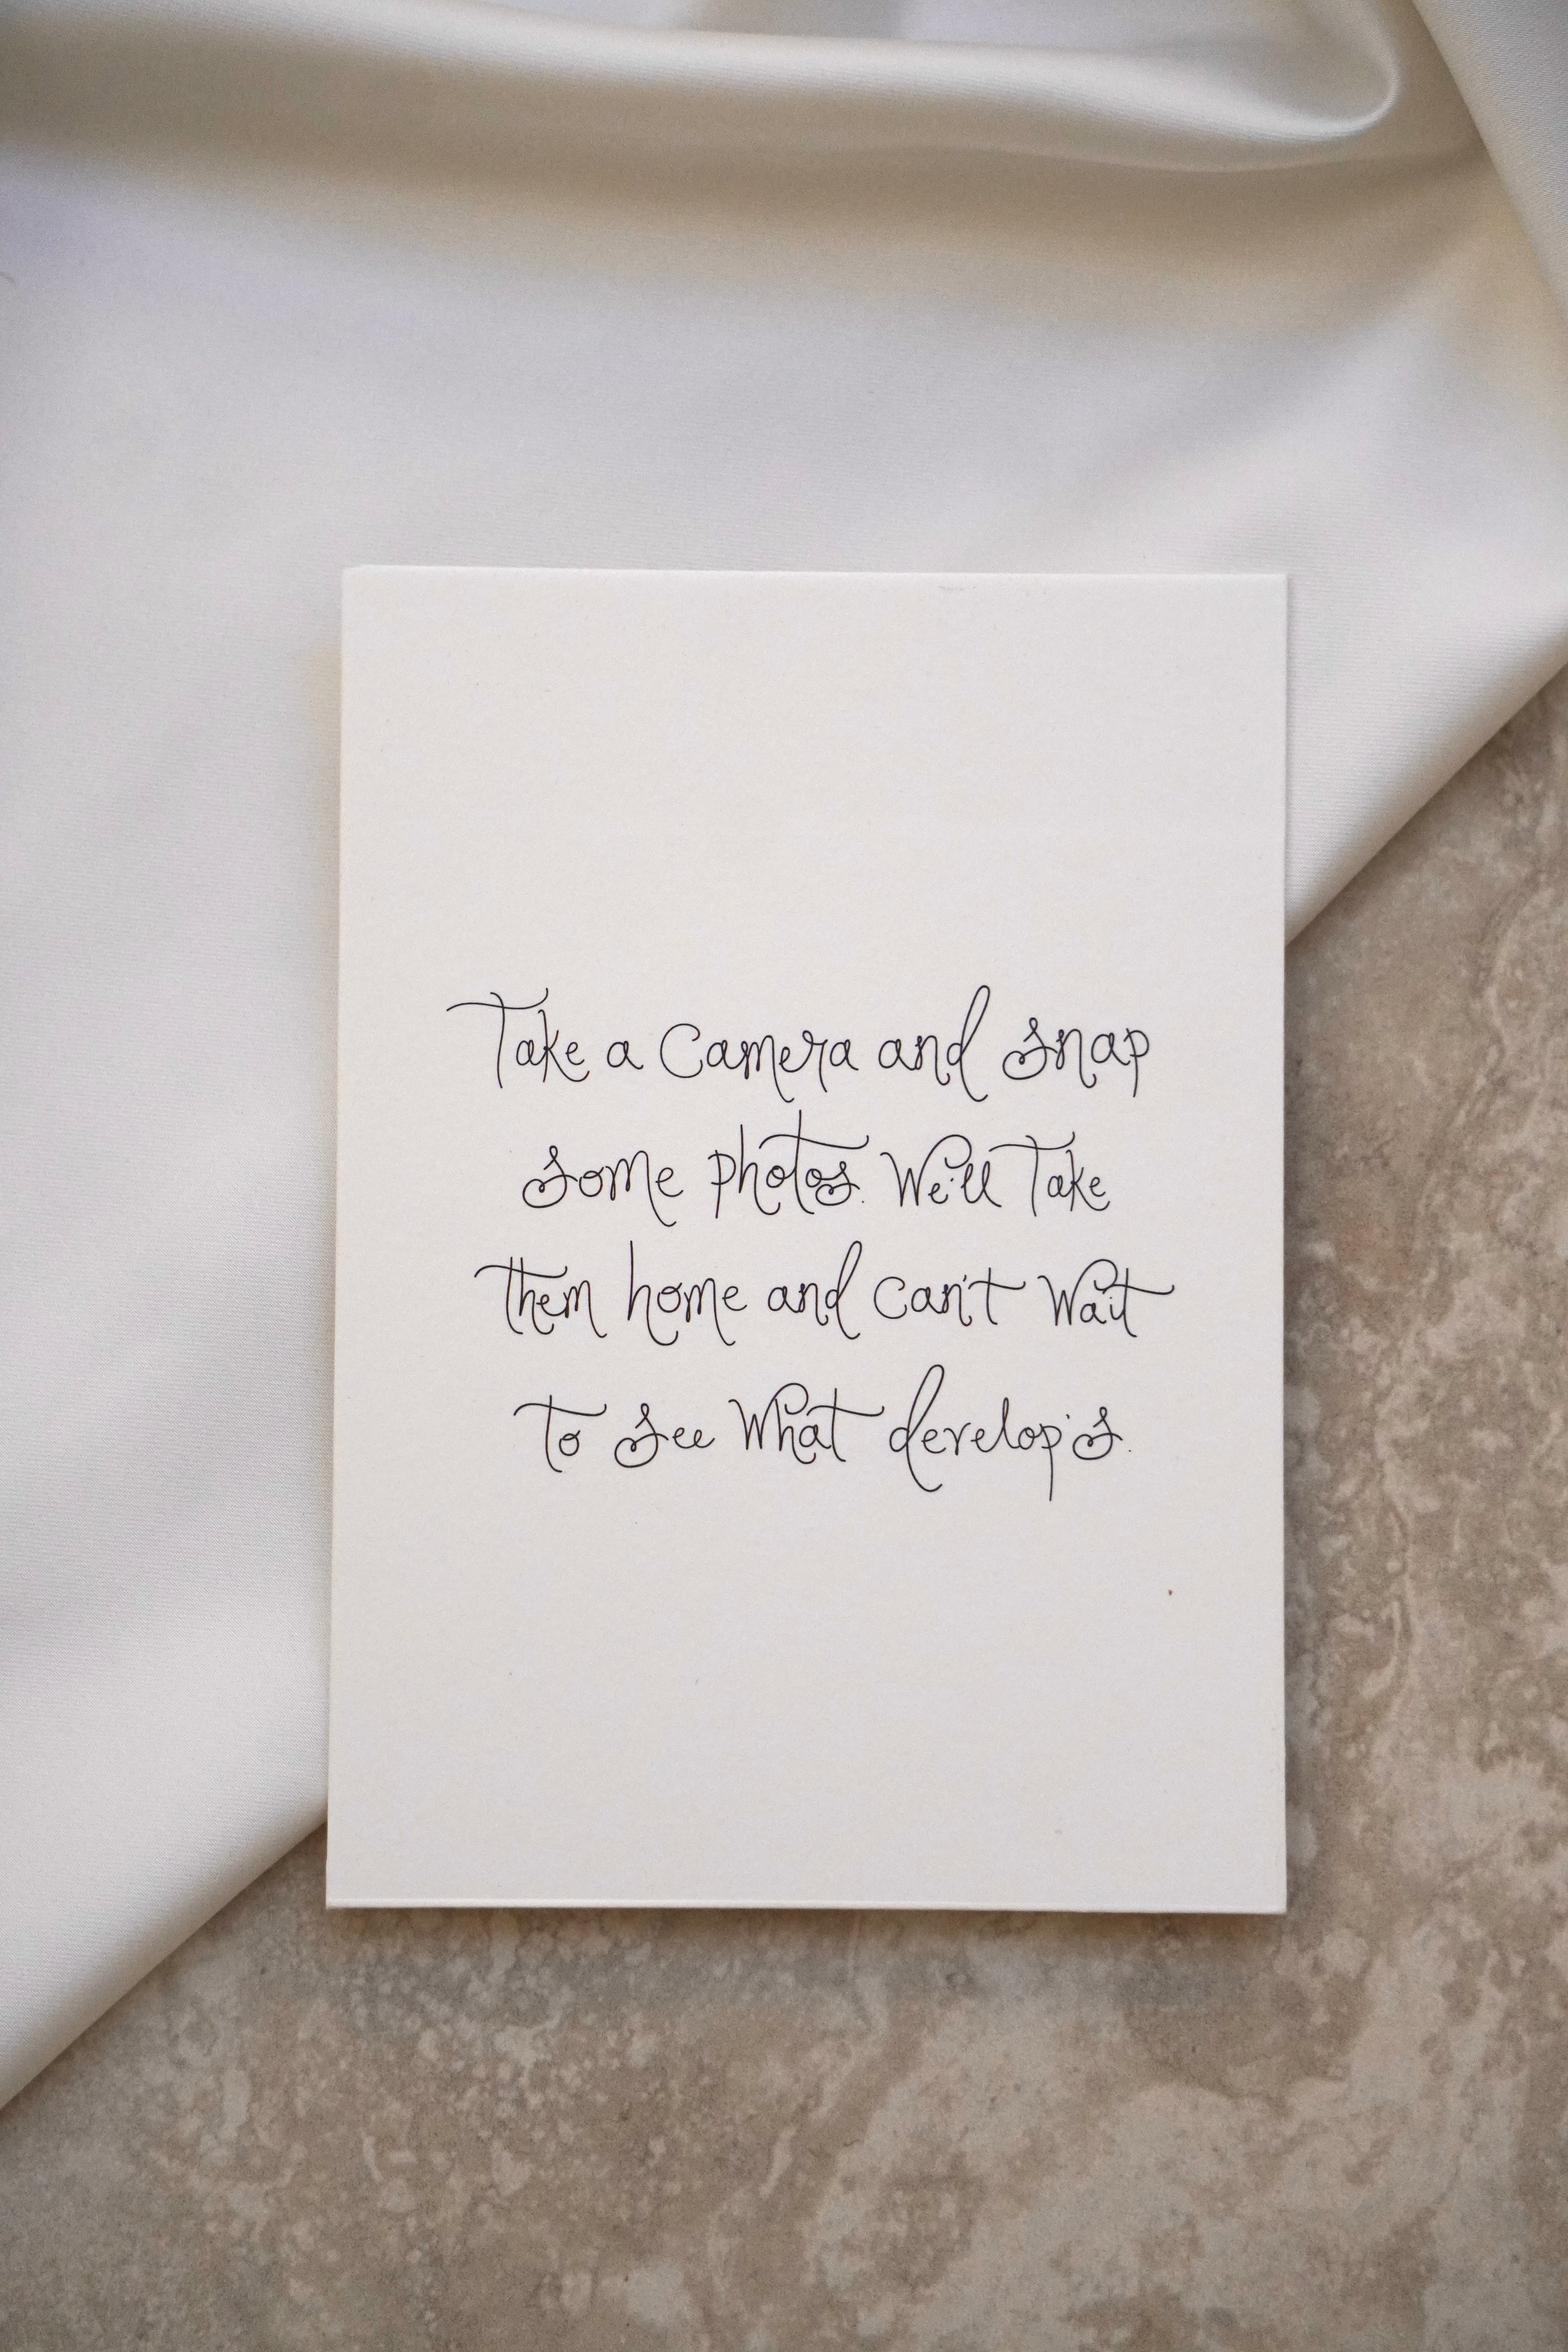 Take a Camera and snap
some photos. We'll Take
them home and can't Wait
To see What develop's.